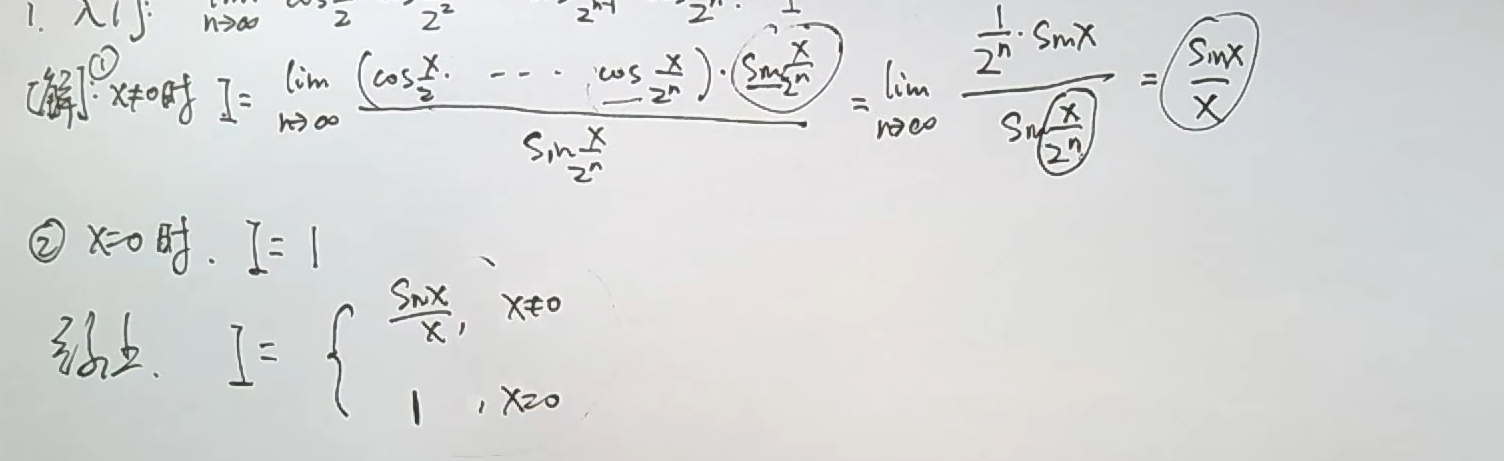 1. 入门: lim n→∞ cos x/2 cos x/2² 2ⁿ⁻¹ 2ⁿ
[解]: ① x≠0时 I = lim n→∞ (cos x/2 · ---- cos x/2ⁿ) · sin x/2ⁿ / sin x/2ⁿ = lim n→∞ 1/2ⁿ · sinx / sin x/2ⁿ = sinx/x
② x=0时. I = 1
综上. I = { sinx/x, x≠0
1, x=0